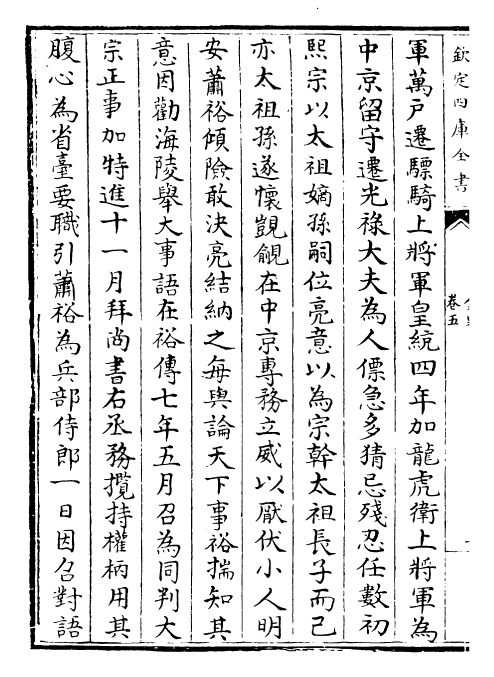 欽定四庫全書
卷五
軍萬戶遷驃騎上將軍皇統四年加龍虎衛上將軍為
中京留守遷光祿大夫為人僄急多猜忌殘忍任數初
熙宗以太祖嫡孫嗣位亮意以為宗幹太祖長子而己
亦太祖孫遂懷覬覦在中京專務立威以厭伏小人明
安蕭裕傾險敢決亮結納之每與論天下事裕揣知其
意因勸海陵舉大事語在裕傳七年五月召為同判大
宗正事加特進十一月拜尚書右丞務攬持權柄用其
腹心為省臺要職引蕭裕為兵部侍郎一日因召對語